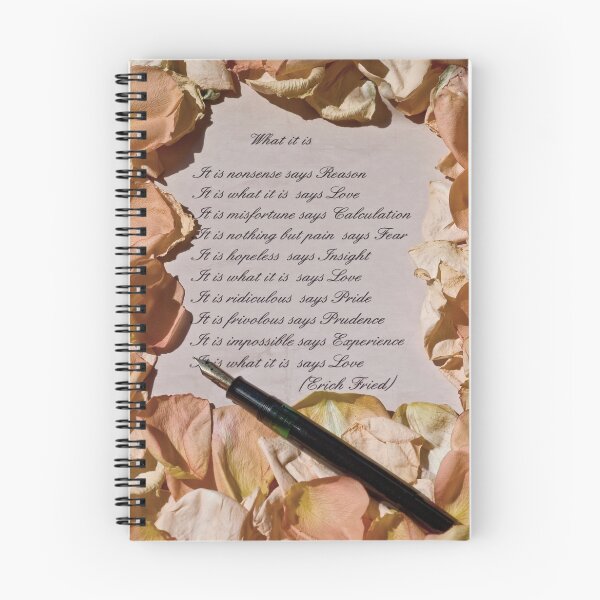 What it is
It is nonsense says Reason
It is what it is says Love
It is misfortune says Calculation
It is nothing but pain says Fear
It is hopeless says Insight
It is what it is says Love
It is ridiculous says Pride
It is frivolous says Prudence
It is impossible says Experience
It is what it is says Love
(Erich Fried)